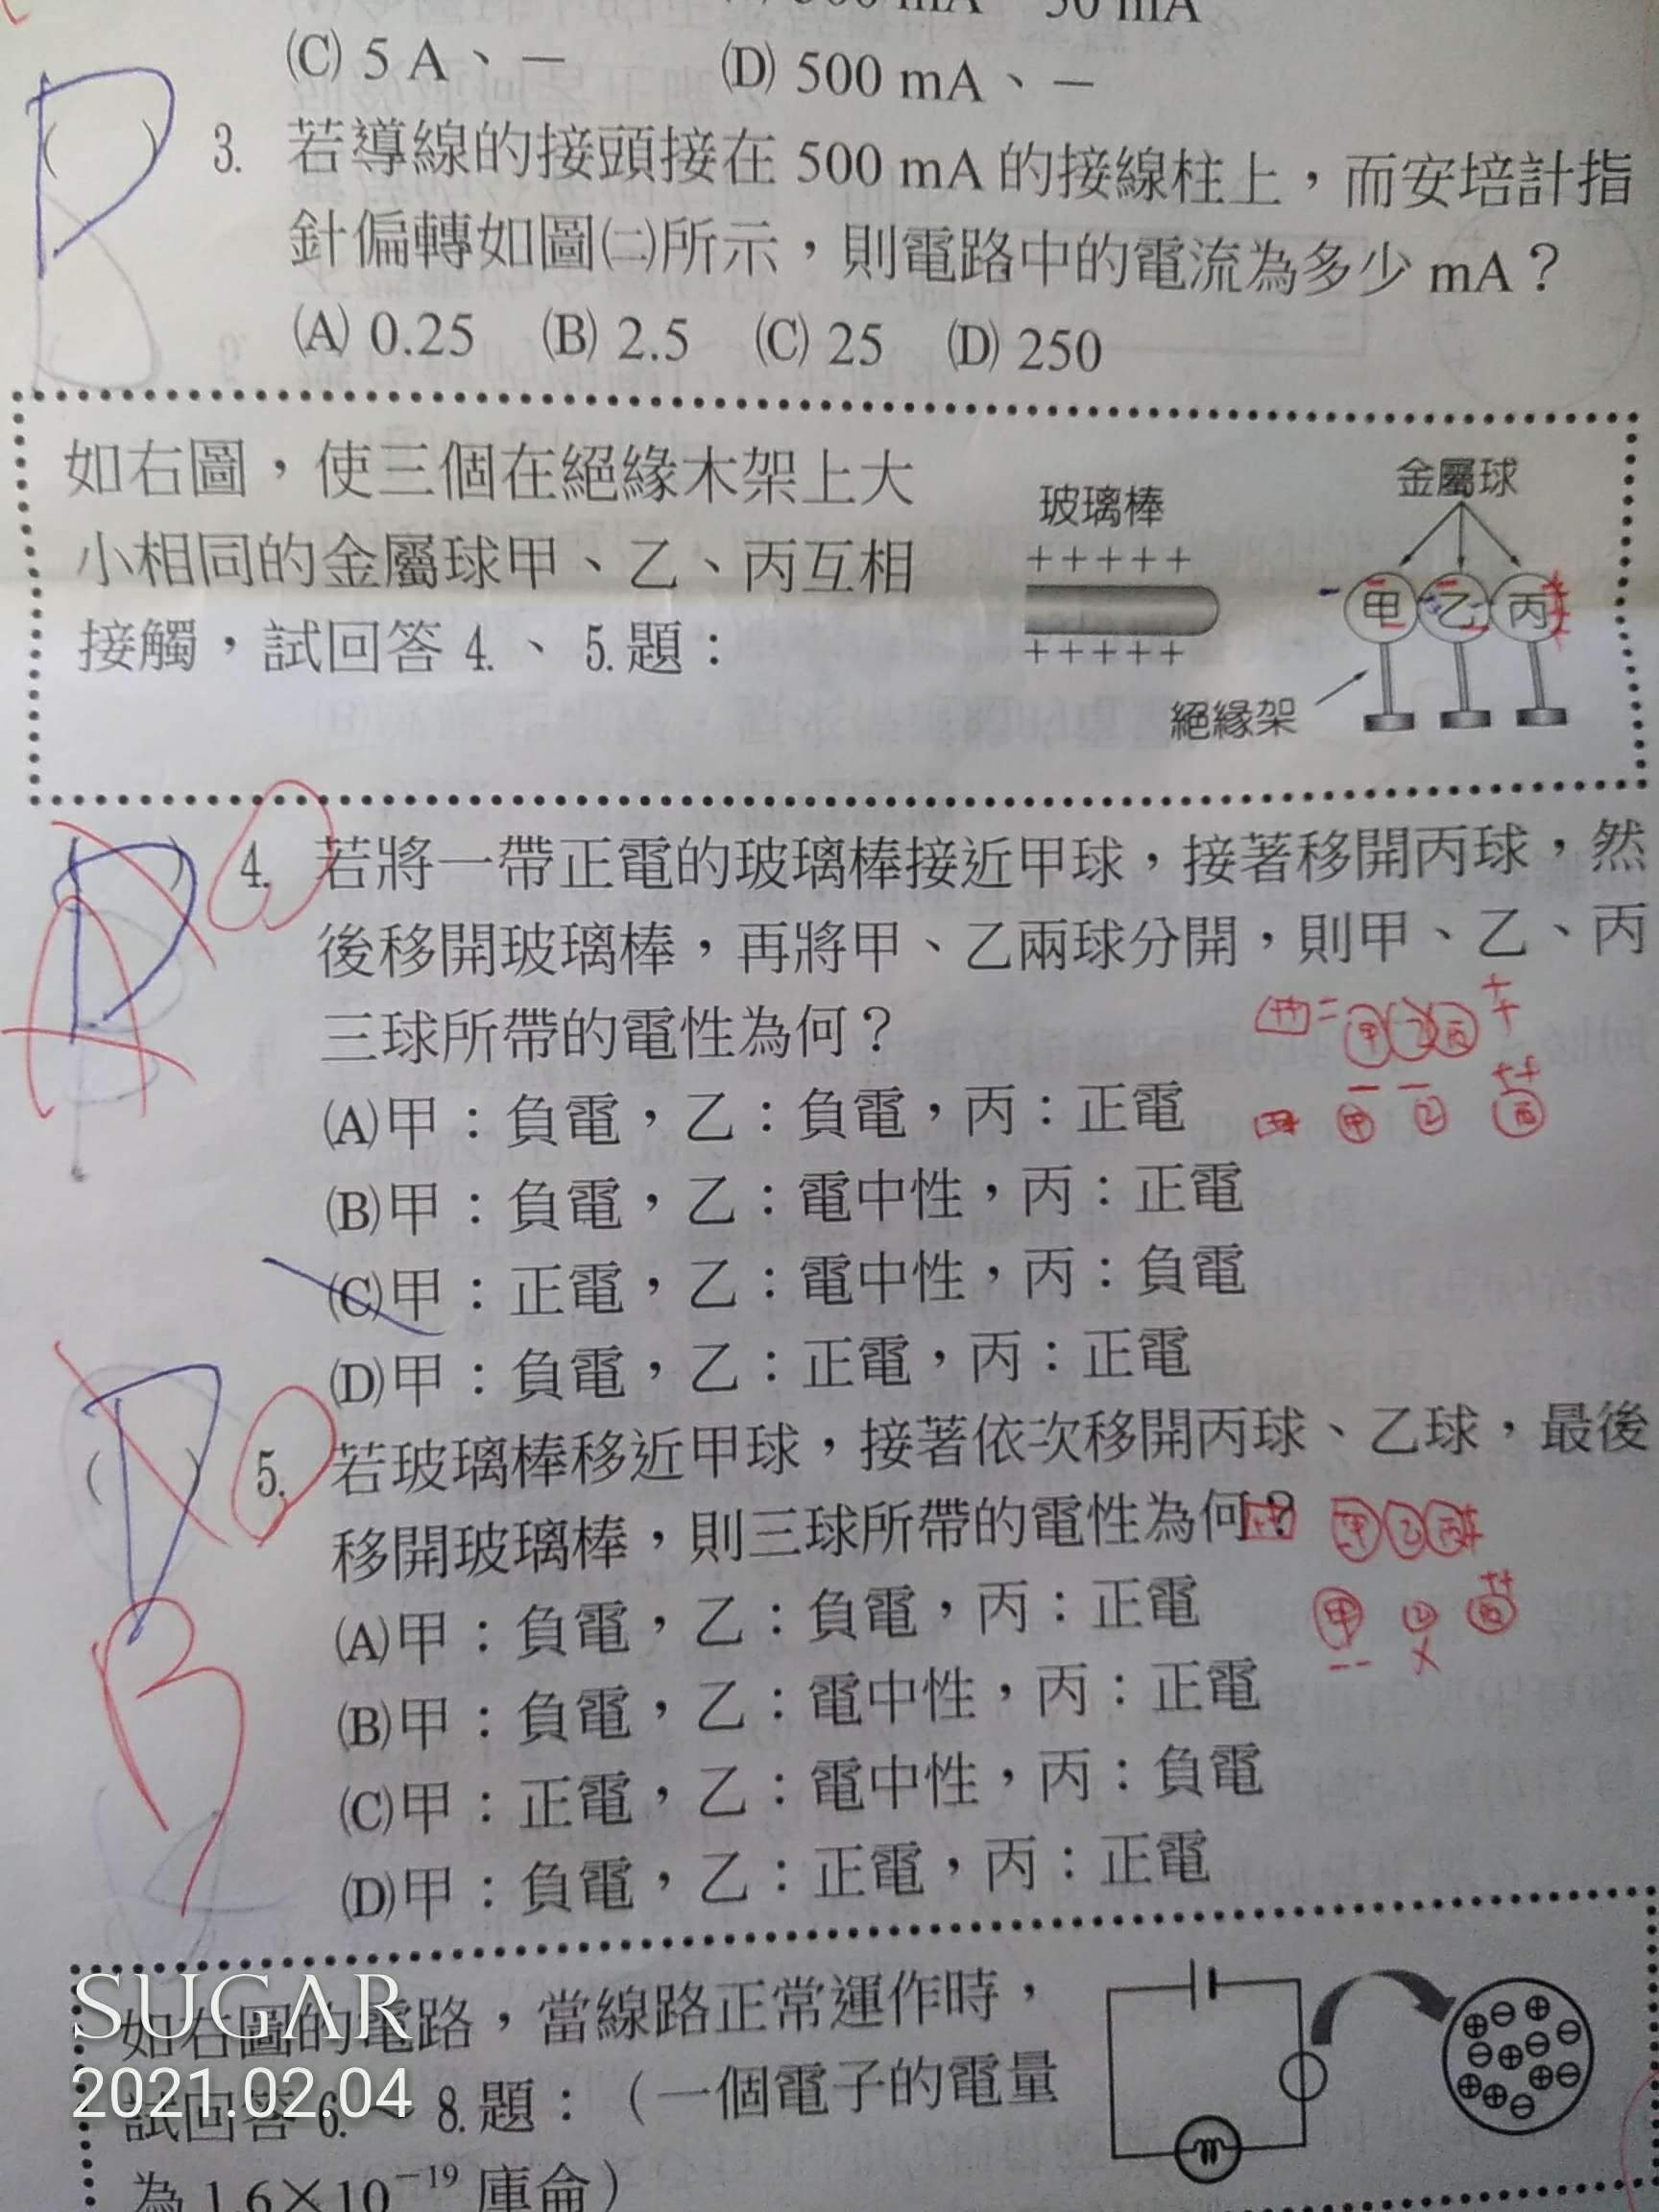 50 mA
(C) 5 A、－ (D) 500 mA、－
D
( ) 3. 若導線的接頭接在 500 mA 的接線柱上，而安培計指
針偏轉如圖㈡所示，則電路中的電流為多少 mA？
(A) 0.25 (B) 2.5 (C) 25 (D) 250
如右圖，使三個在絕緣木架上大
小相同的金屬球甲、乙、丙互相
接觸，試回答 4.、5.題：
玻璃棒
+++++
+++++
金屬球
甲 乙 丙
絕緣架
D
A
( ) 4. 若將一帶正電的玻璃棒接近甲球，接著移開丙球，然
後移開玻璃棒，再將甲、乙兩球分開，則甲、乙、丙
三球所帶的電性為何？
甲 乙 丙
甲 乙 丙
(A)甲：負電，乙：負電，丙：正電
(B)甲：負電，乙：電中性，丙：正電
(C)甲：正電，乙：電中性，丙：負電
(D)甲：負電，乙：正電，丙：正電
D
B
( ) 5. 若玻璃棒移近甲球，接著依次移開丙球、乙球，最後
移開玻璃棒，則三球所帶的電性為何？
甲 乙 丙
甲 乙 丙
(A)甲：負電，乙：負電，丙：正電
(B)甲：負電，乙：電中性，丙：正電
(C)甲：正電，乙：電中性，丙：負電
(D)甲：負電，乙：正電，丙：正電
如右圖的電路，當線路正常運作時，
試回答 6.～8.題：（一個電子的電量
為 1.6×10⁻¹⁹ 庫侖）
SUGAR
2021.02.04